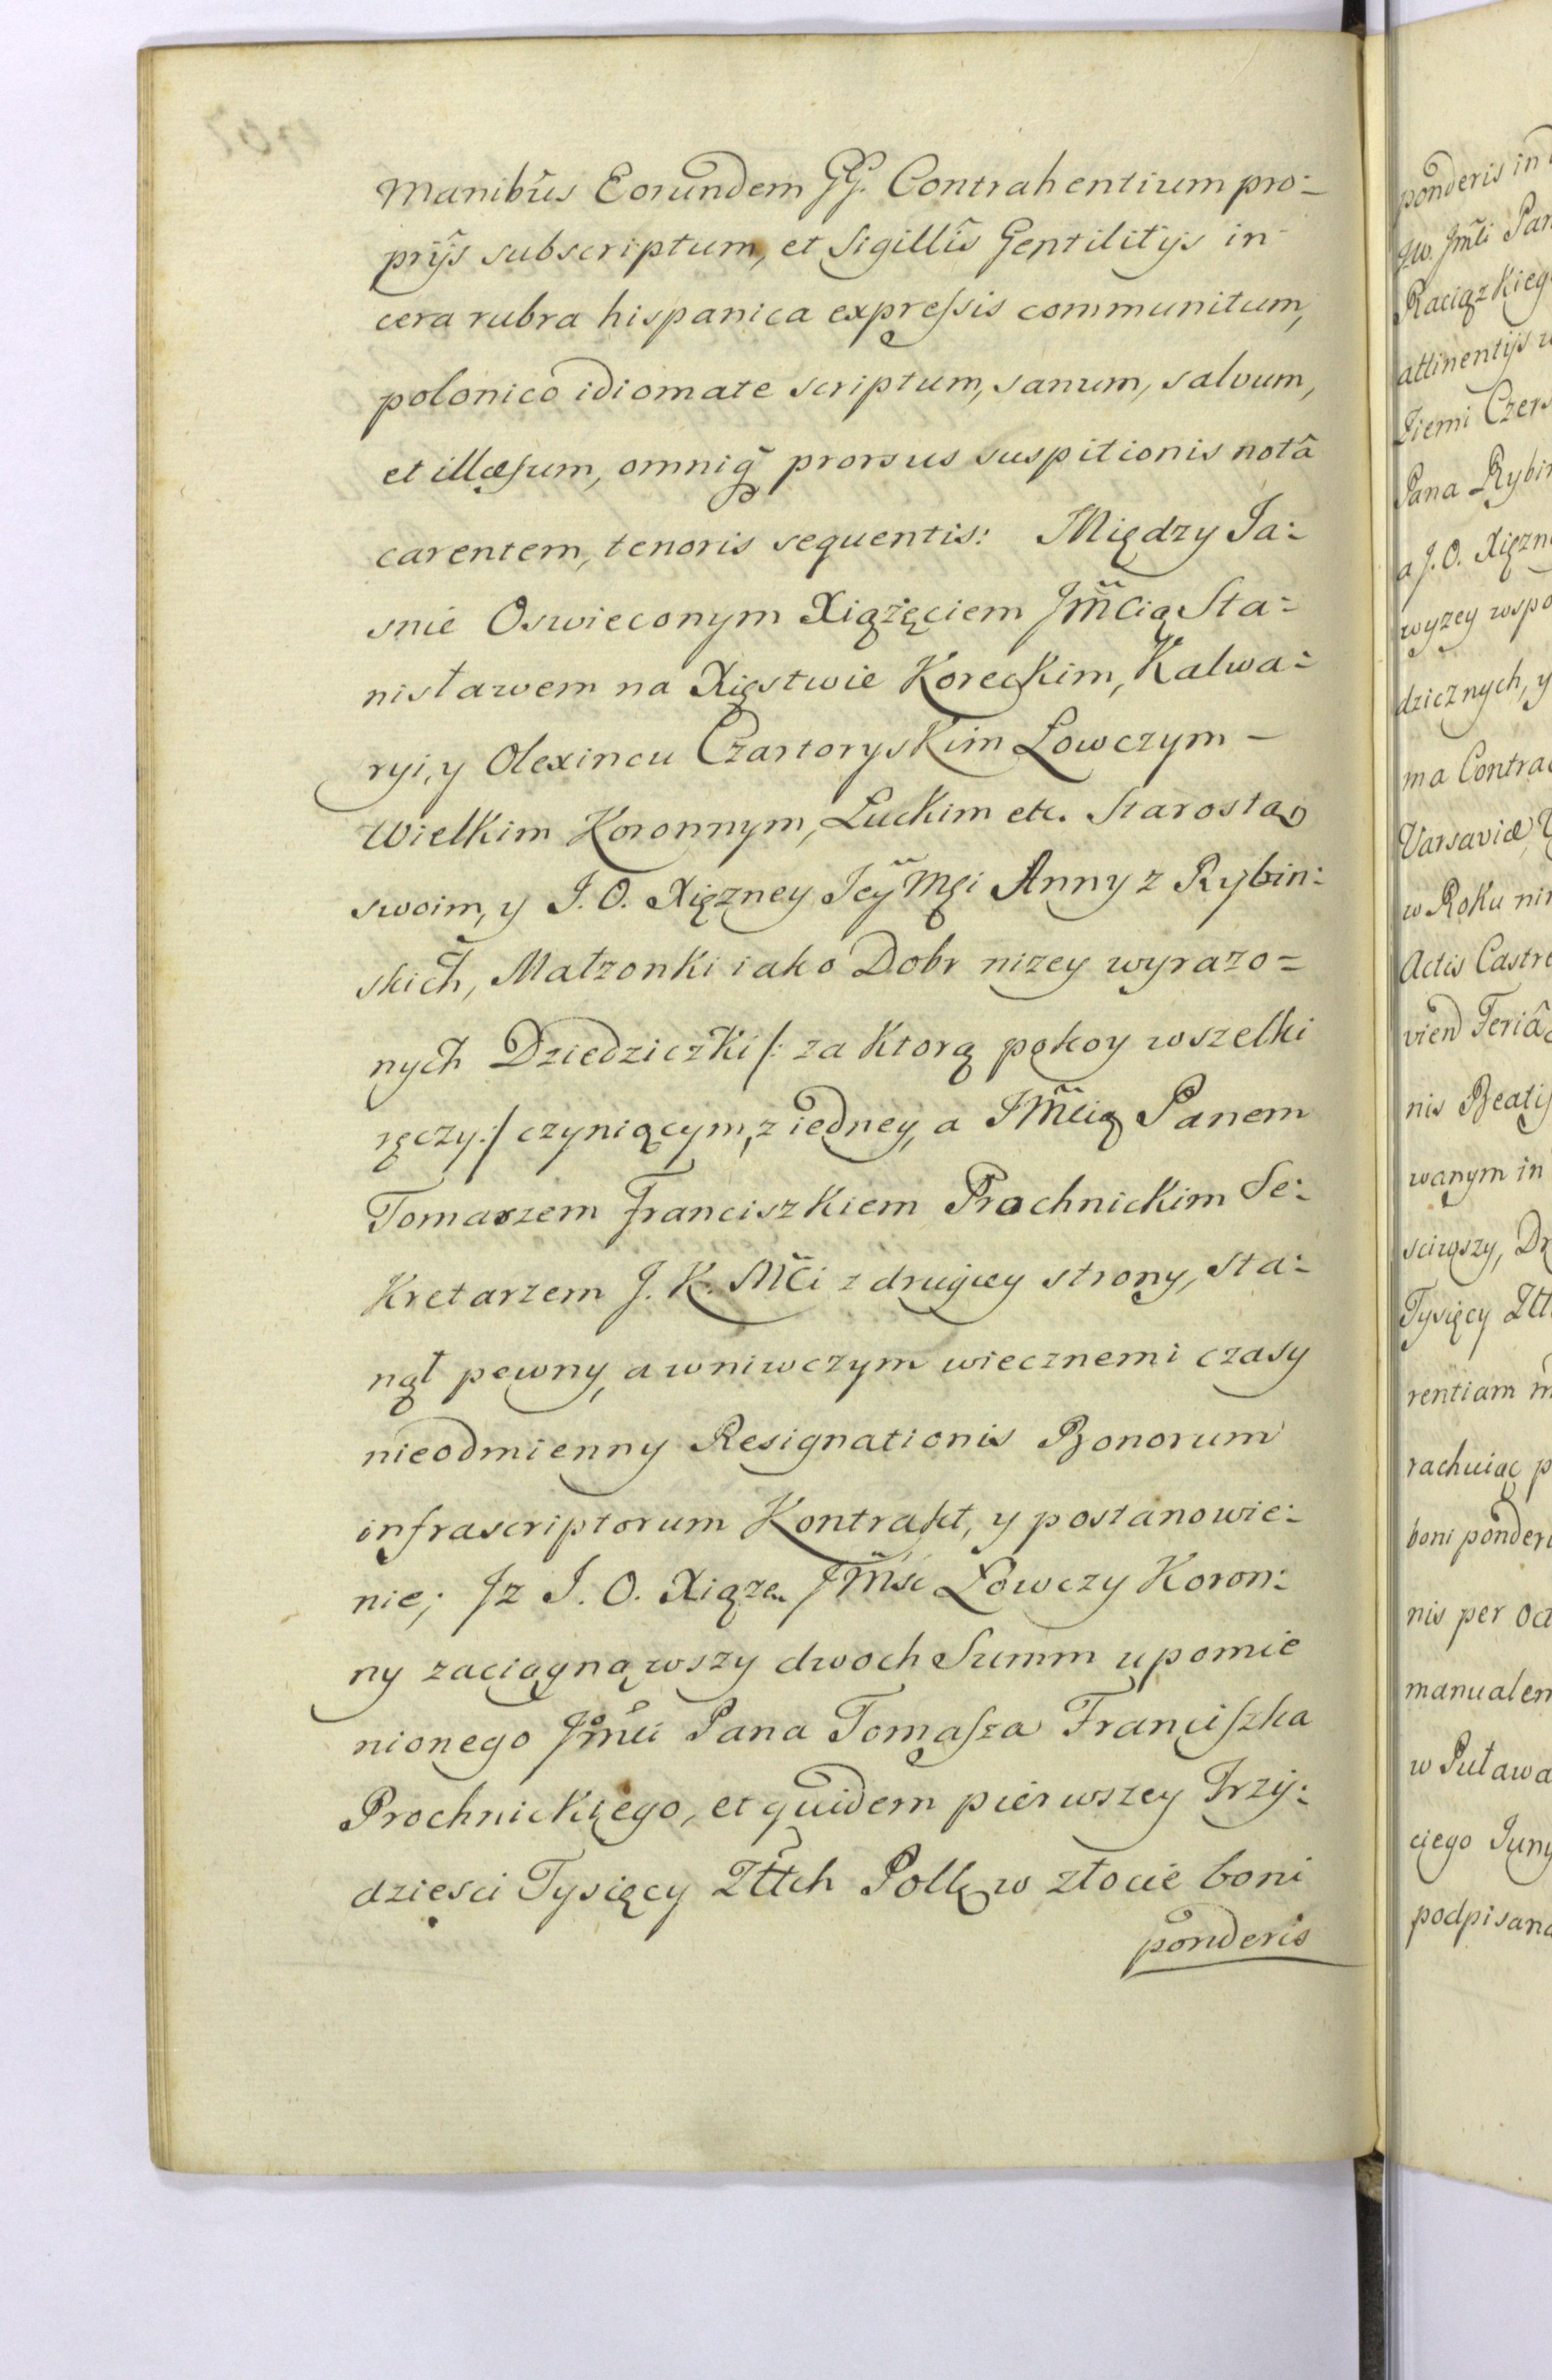 Manibus Eorundem GG. Contrahentium pro:
prijs subscriptum, et Sigillis Gentilitijs in
cera rubra hispanica expreſsis communitum,
polonico idiomate scriptum, sanum, salvum,
et illæsum, omniq̃ prorsus suspitionis notâ
carentem, tenoris sequentis: Między Ja:
snie Oswieconym Xiążęciem Jm̃cią Sta:
nisławem na Xięstwie Koreckim, Kalwa:
ryi, y Olexincu Czartoryskim Łowczym
Wielkim Koronnym, Łuckim etc. Starostą
swoim, y J. O. Xięzney Jcÿ Mci Anny z Rybin:
skich, Małzonki iako Dobr nizey wyrazo=
nych Dziedziczki /: za ktorą pokoy wszelki
ręczy :/ czyniącym, z iedney, a Jm̃cią Panem
Tomaszem Franciszkiem Prochnickim Se:
kretarzem J. K. Mc̃i z drugiey strony, sta:
nął pewny, a wniwczym wiecznemi czasy
nieodmienny Resignationis Bonorum
infrascriptorum Kontrakt, y postanowie:
nie; Jz J. O. Xiąze Jm̃sc Łowczy Koron:
ny zaciągnąwszy dwoch Summ u pomie
nionego Jm̃ci Pana Tomaſza Franciſzka
Prochnickiego, et quidem pierwszey Trzy:
dziesci Tysięcy Złłch Polł w złocie boni
ponderis
ponderis in
Jw. Jm̃ci Pan
Raciązkieg
attinentijs
Ziemi Czers
Pana Rybin
a J. O. Xięzn
wyzey wspo
dzicznych, y
ma Contrac
Varsaviæ
w Roku nin
Actis Castre
vien Feriâ
nis Beatiſ
wanym in
Tysięcy Złł
rentiam
rachuiąc p
boni ponder
nis per Oct
manualem
w Puława
ciego Juny
podpisana